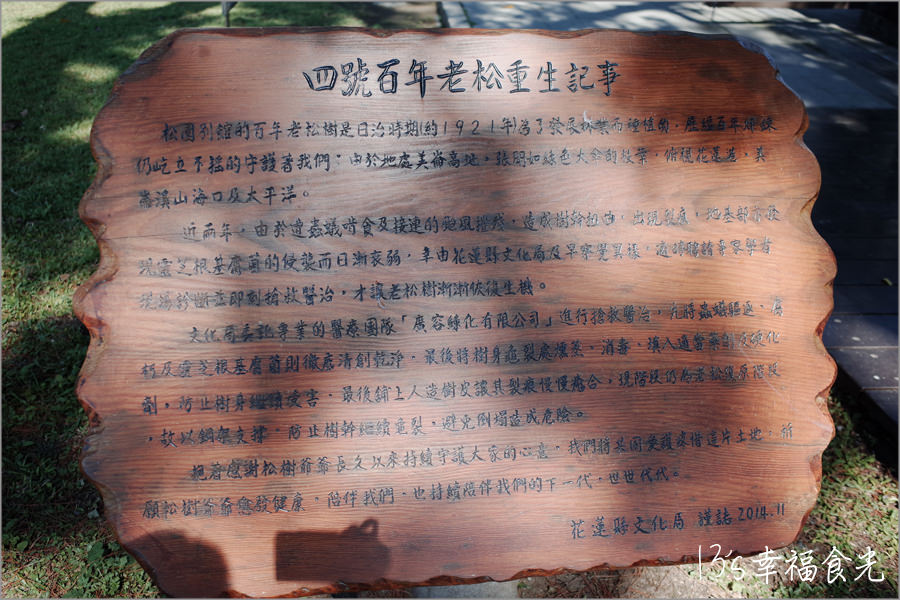 四號百年老松重生記事
松園別館的百年老松樹是日治時期(約1921年)為了發展林業而種植的，歷經百年
仍屹立不搖的守護著我們；由於地處美崙高地，張開如綠色大傘的枝葉，俯視花蓮港、美
崙溪山海口及太平洋。
近兩年，由於遭蟲蟻啃食及接連的颱風摧殘，造成樹幹扭曲，出現裂痕，地基部亦發
現靈芝根基腐菌的侵襲而日漸衰弱，幸由花蓮縣文化局及早察覺異樣，
現場診斷並即刻搶救醫治，才讓老松樹漸漸恢復生機。
文化局委託專業的醫療團隊「廣容綠化有限公司」進行搶救醫治，先將蟲蟻驅逐、腐
朽及靈芝根基腐菌則徹底清創乾淨，最後將樹身龜裂處燻蒸、消毒，填入適當藥劑及硬化
劑，防止樹身繼續受害，最後鋪上人造樹皮讓其裂痕慢慢癒合，現階段仍為老松復原階段
，故以鋼架支撐，防止樹幹繼續龜裂，避免倒塌造成危險。
抱著感謝松樹爺爺長久以來持續守護大家的心意，我們將共同愛護珍惜這片土地；祈
願松樹爺爺愈發健康，陪伴我們，也持續陪伴我們的下一代，世世代代。
花蓮縣文化局 謹誌 2014.11
13's幸福食光